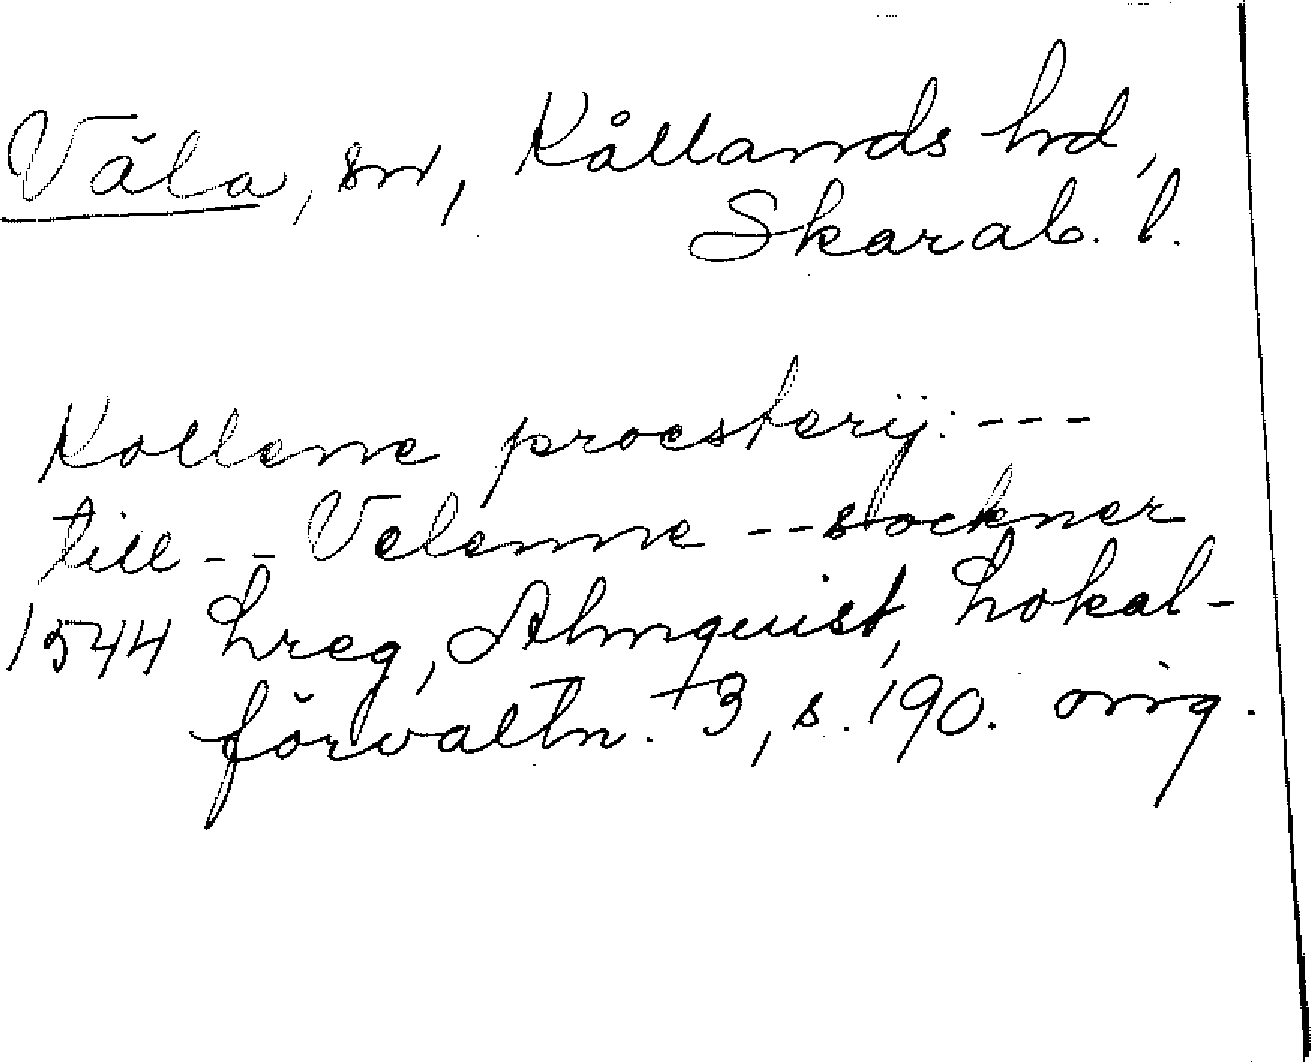 Väla, sn, Kållands hd,
Skarab. l.
Kollene proesterij: ---
till -- Velenne -- sockner
1544 Lreg, Almquist, Lokal-
förvaltn. 3, s. 190. orig.